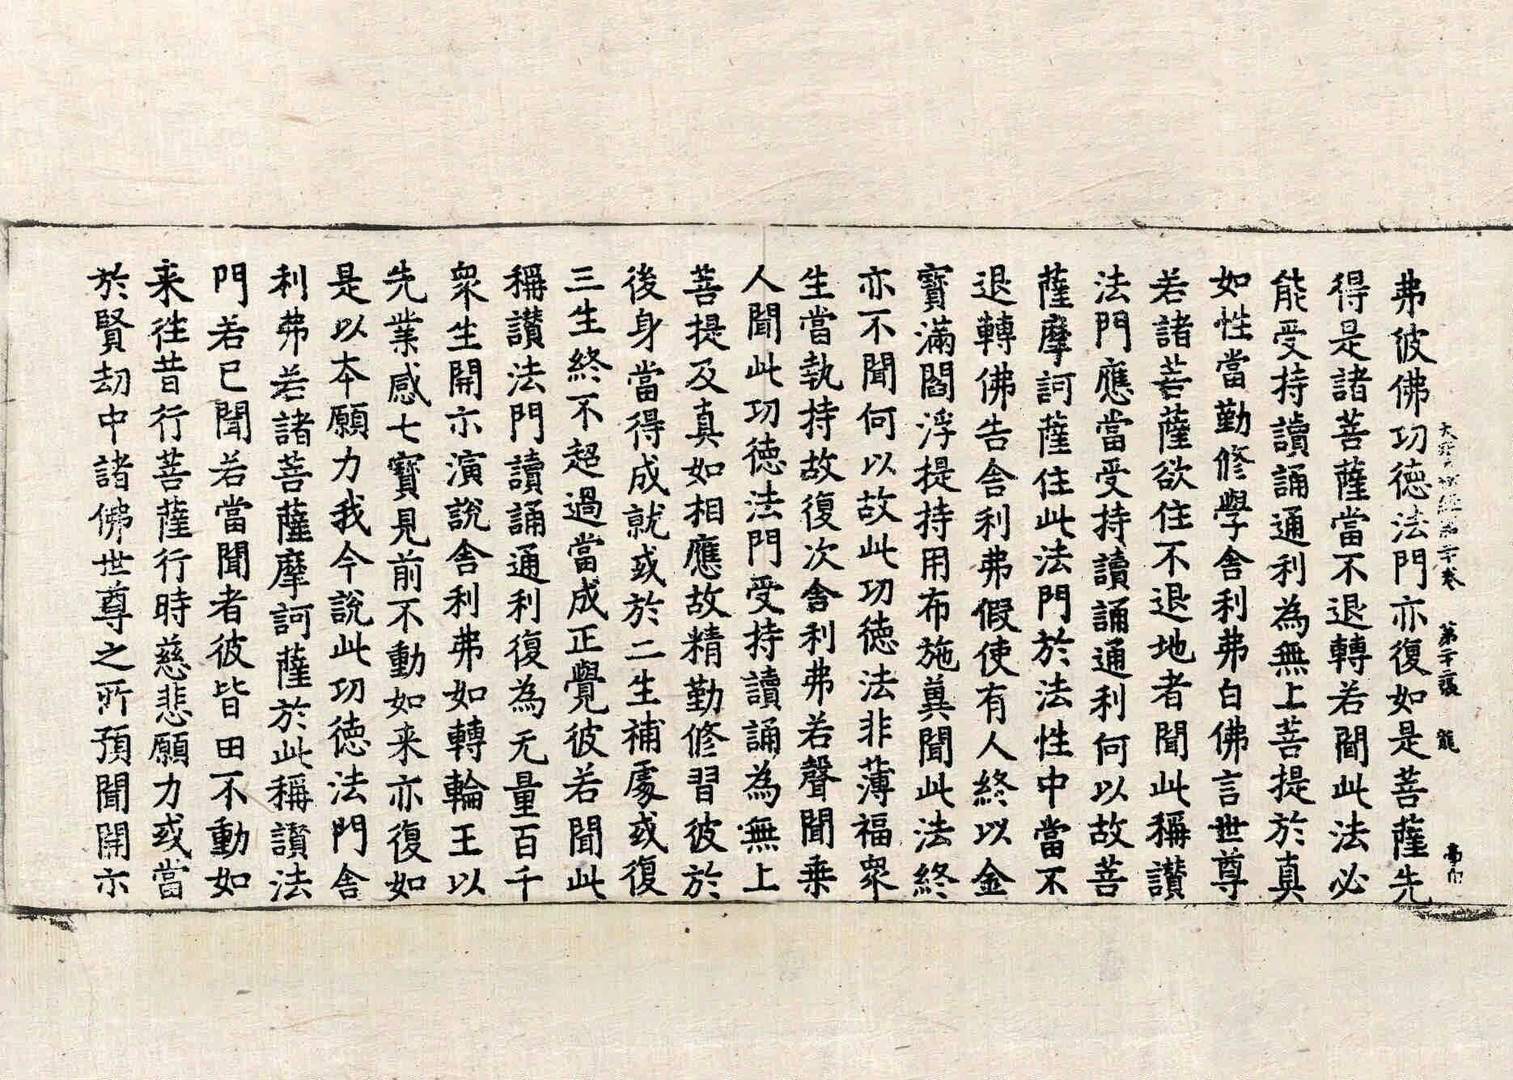 大寶積經第二十卷 第二十二張 龍
弗彼佛功德法門亦復如是菩薩先
得是諸菩薩當不退轉若聞此法必
能受持讀誦通利為無上菩提於真
如性當勤修學舍利弗白佛言世尊
若諸菩薩欲住不退地者聞此稱讃
法門應當受持讀誦通利何以故菩
薩摩訶薩住此法門於法性中當不
退轉佛告舍利弗假使有人終以金
寶滿閻浮提持用布施兾聞此法終
亦不聞何以故此功徳法非薄福衆
生當執持故復次舎利弗若聲聞乗
人聞此功徳法門受持讀誦為無上
菩提及真如相應故精勤修習彼於
後身當得成就或於二生補處或復
三生終不超過當成正覺彼若聞此
稱讃法門讀誦通利復為无量百千
衆生開示演說舍利弗如轉輪王以
先業感七寶見前不動如来亦復如
是以本願力我今說此功徳法門舍
利弗若諸菩薩摩訶薩於此稱讃法
門若已聞若當聞者彼皆田不動如
来徃昔行菩薩行時慈悲願力或當
於賢劫中諸佛世尊之所預聞開示